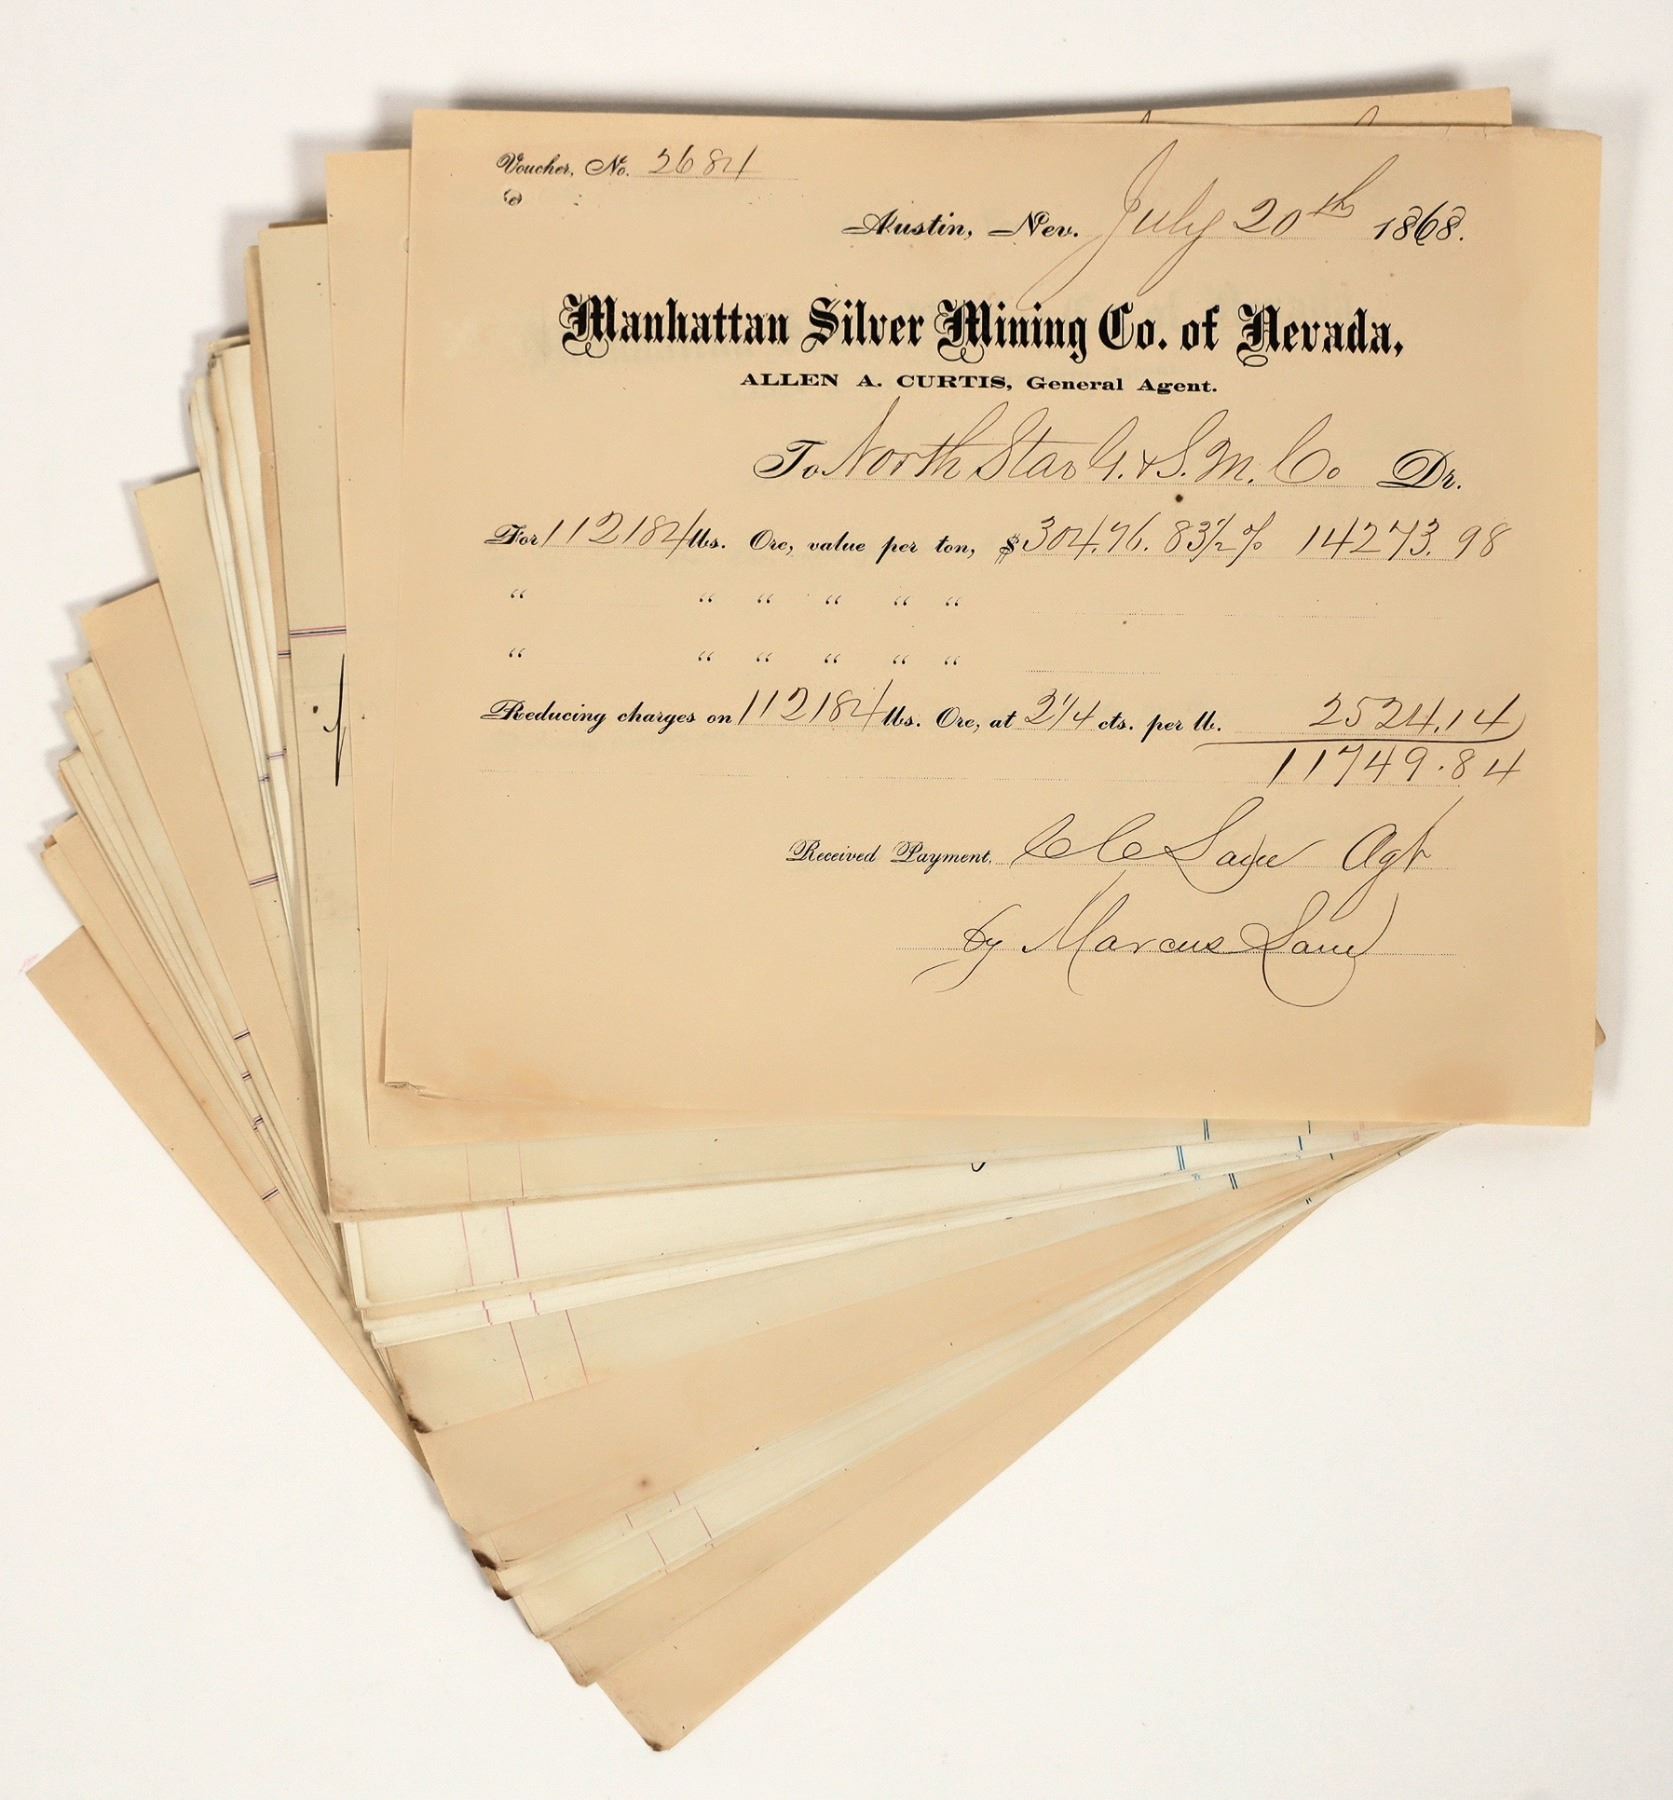 Voucher, No. 2684
Austin, Nev. July 20th 1868.
Manhattan Silver Mining Co. of Nevada,
ALLEN A. CURTIS, General Agent.
To North Star G. & S. M. Co Dr.
For 112184 lbs. Ore, value per ton, $304.76. 83½% 14273.98
“ “ “ “ “ “
“ “ “ “ “ “
Reducing charges on 112184 lbs. Ore, at 2¼ cts. per lb. 2524.14
11749.84
Received Payment, C C Lane Agt
by Marcus Lane